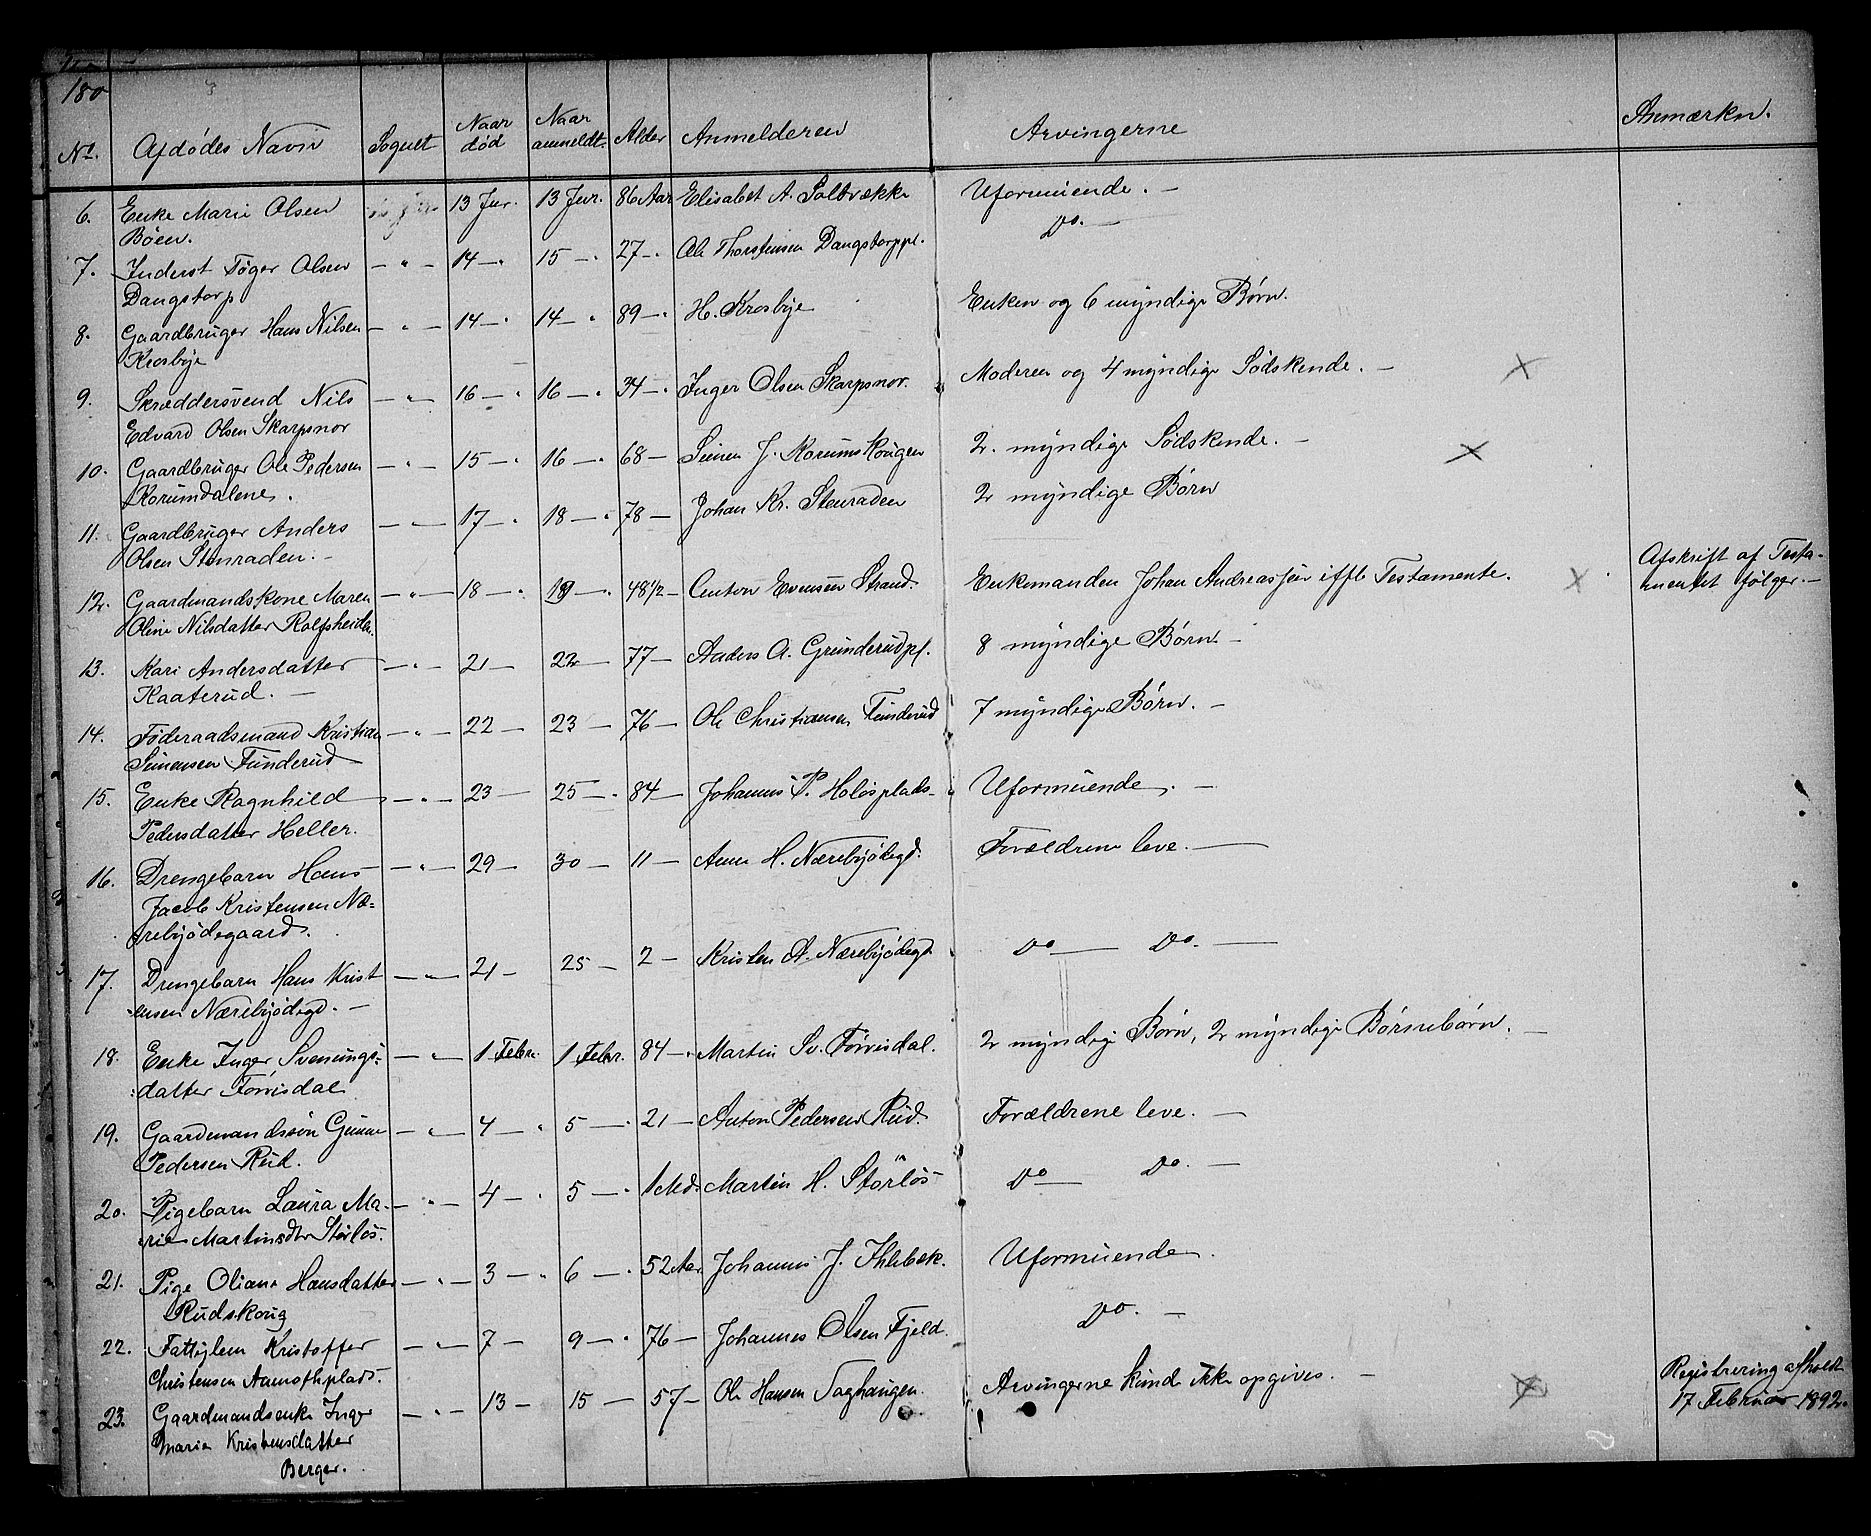 180
No. Afdødes Navn Sognet Naar død Naar anmeldt Alder Anmelderen Arvingerne Anmærkn.
6. Enke Marie Olsen 13 Jnr. 13 Jnr. 86 Aar Elisabet A. Solbrække Uformuende. —
Bøen. Do. —
7. Inderst Tøger Olsen — " — 14 — 15 — 27 — Ole Thorstensen Dangstorppl.
Dangstorp
8. Gaardbruger Hans Nilsen — " — 14 — 14 — 89 — H. Krosbye Enken og 6 myndige Børn.
Krosbye
9. Skræddersvend Nils — " — 16 — 16 — 34 — Inger Olsen Skarpsnor. Moderen og 4 myndige Sødskende. —
Edvard Olsen Skarpsnor
10. Gaardbruger Ole Pedersen — " — 15 — 16 — 68 — Simen J. Korumskougen 2 myndige Sødskende. —
Korumdalene.
11. Gaardbruger Anders — " — 17 — 18 — 78 — Johan Kr. Stenraden 2 myndige Børn
Olsen Stenraden. —
12. Gaardmandskone Maren — " — 18 — 19 — 48 1/2 — Anton Evensen Strand. Enkemanden Johan Andreassen iflg Testamente. Afskrift af Testa-
Oline Nilsdatter Rolfsheida. mentet følger. —
13. Kari Andersdatter — " — 21 — 22 — 77 — Anders A. Grinderudpl. 8 myndige Børn. —
Kaaterud. —
14. Føderaadsmand Kristian — " — 22 — 23 — 76 — Ole Christiansen Funderud 7 myndige Børn. —
Simensen Funderud
15. Enke Ragnhild — " — 23 — 25 — 84 — Johannes P. Holøsplads Uformuende. —
Pedersdatter Heller.
16. Drengebarn Hans — " — 29 — 30 — 11 — Anne H. Nærebyødegd. Forældrene leve. —
Jacob Kristensen Næ-
rebyødegaard.
17. Drengebarn Hans Krist — " — 21 — 25 — 2 — Kristen A. Nærebyødegd Do — Do. —
ensen Nærebyødegd. —
18. Enke Inger Svenungs- — " — 1 Febr. 1 Febr. 84 — Martin Sv. Førrisdal. 2 myndige Børn, 2 myndige Børnebørn. —
datter Førrisdal
19. Gaardmandssøn Gunne — " — 4 — 5 — 21 — Anton Pedersen Rud. Forældrene leve. —
Pedersen Rud.
20. Pigebarn Laura Ma- — " — 4 — 5 — 1 Md. Martin H. Størløs Do — Do. —
rie Martinsdtr Størløs.
21. Pige Oliane Hansdatter — " — 3 — 6 — 52 Aar Johannes J. Ihlebek. Uformuende.
Rudskoug
22. Fattiglem Kristoffer — " — 7 — 9 — 76 — Johannes Olsen Fjeld. Do. —
Christensen Aamothplads.
23. Gaardmandsenke Inger — " — 13 — 15 — 57 — Ole Hansen Taghaugen. Arvingerne kunde ikke opgives. — Registrering afholdt
Marie Kristensdatter 17 Februar 1892.
Berger.